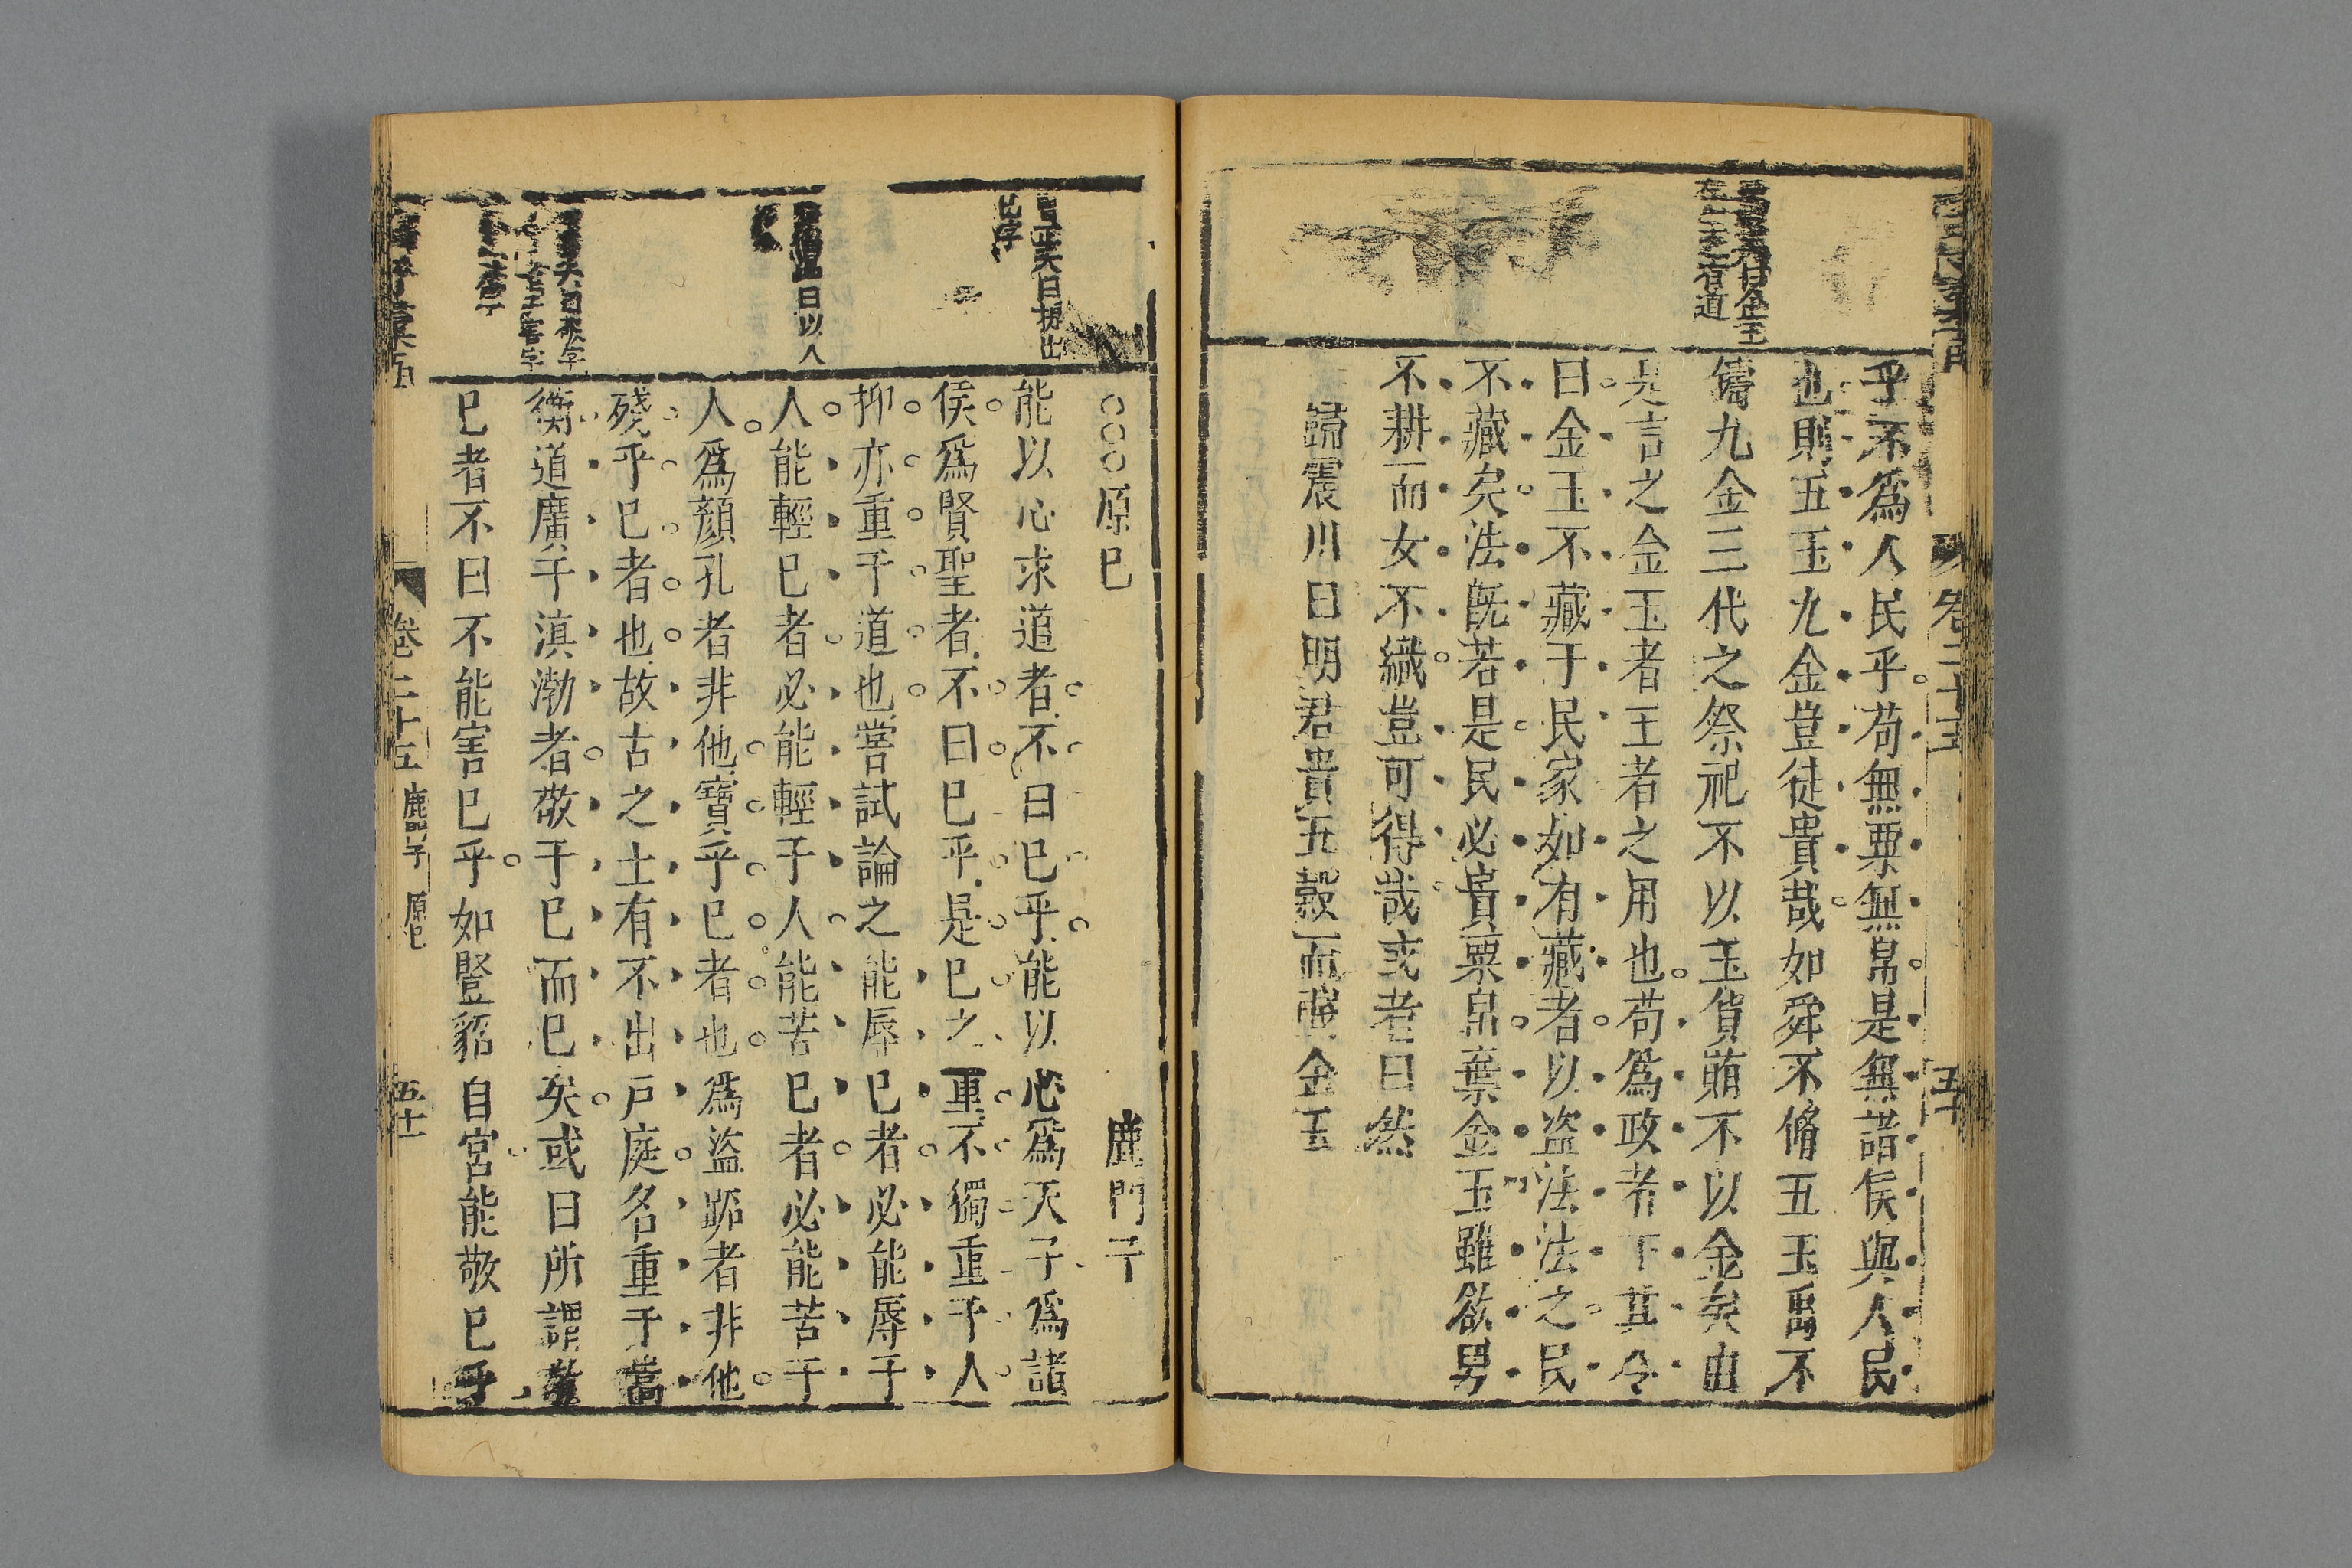 乎不爲人民乎苟無粟無帛是無諸侯與人民
也則五玉九金豈徒貴哉如舜不脩五玉禹不
鑄九金三代之祭祀不以玉貨賄不以金矣由
是言之金玉者王者之用也苟爲政者下其令
曰金玉不藏于民家如有藏者以盜法法之民
不藏矣法旣若是民必貴粟帛棄金玉雖欲男
不耕而女不織豈可得哉或者曰然
歸震川曰明君貴五穀而賤金玉
卷二十五
五十
○○○原巳
鹿門子
曰提出
巳字
能以心求道者不曰巳乎能以心爲天子爲諸
侯爲賢聖者不曰巳乎是巳之重不獨重于人
抑亦重于道也嘗試論之能辱巳者必能辱于
人能輕巳者必能輕于人能苦巳者必能苦于
曰以人
人爲顏孔者非他寶乎巳者也爲盜跖者非他
殘乎巳者也故古之士有不出戶庭名重于嵩
衡道廣于滇渤者敬于巳而巳矣或曰所謂敬
巳者不曰不能害巳乎如豎貂自宮能敬巳乎
卷二十五
鹿門子
原巳
五十一